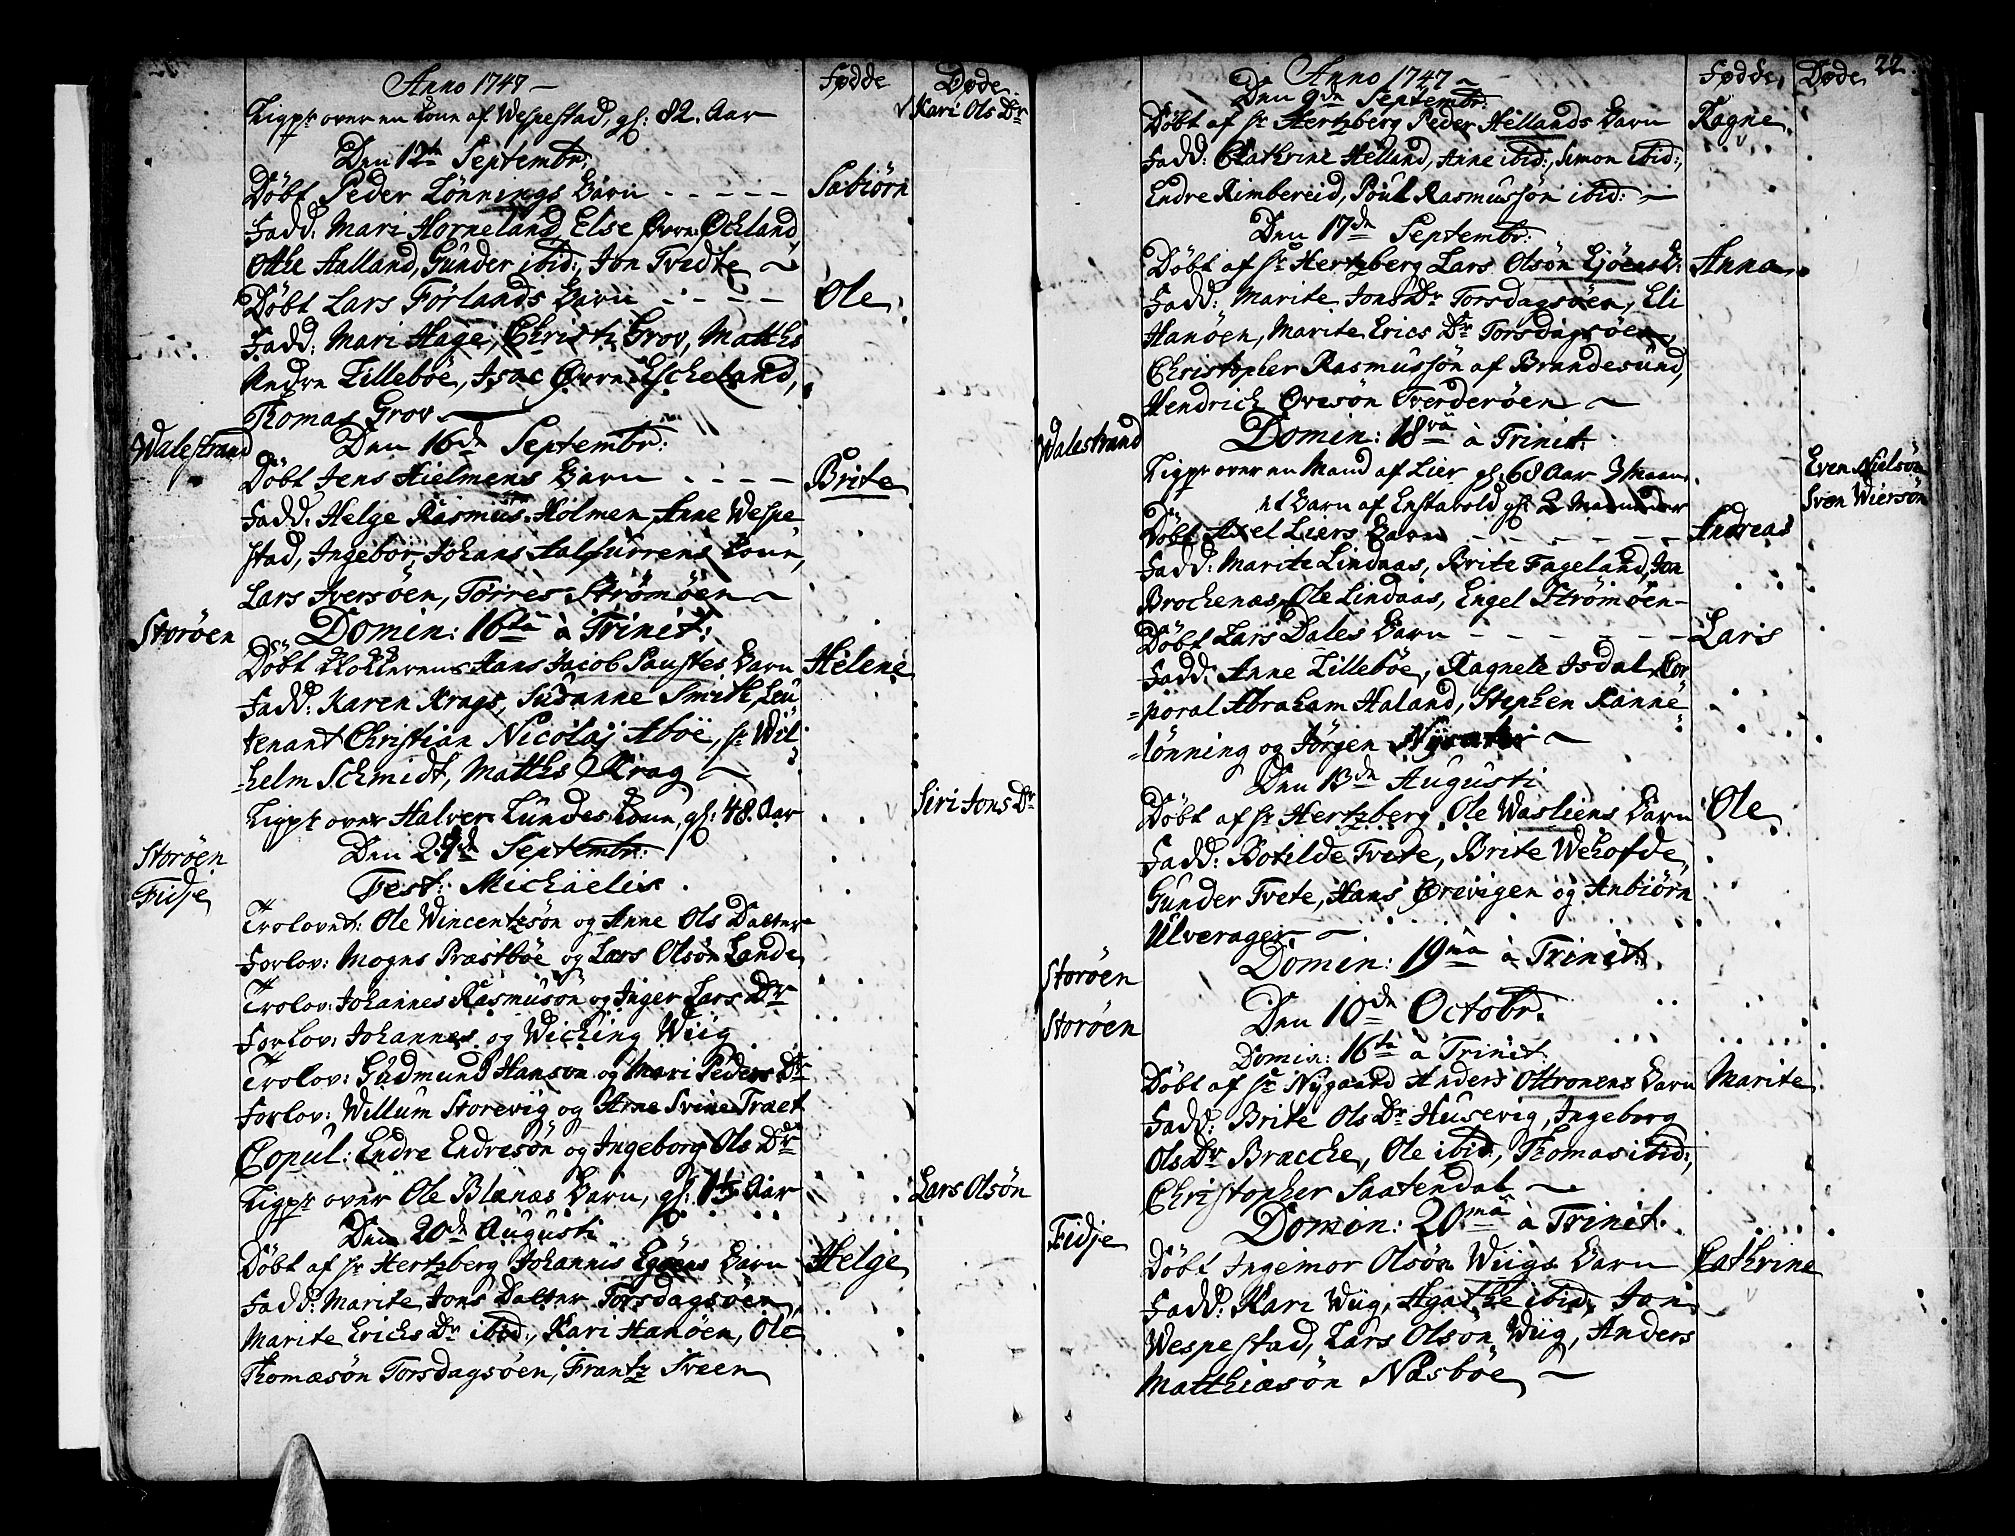 Anno 1747
Fødde
Døde
Ligpr over en Kone af Wespestad, gl: 82. Aar
Kari Ols Dr
Den 12te Septembr:
Døbt Peder Lønnings Barn
Sabiørn
Fadd: Mari Horneland, Else Øvre: Ochland,
Otte Halland, Gunder ibid:, Jon Tvedte
Døbt Lars Førlands Barn
Ole
Fadd: Mari Hage, Christi Grov, Matths
Andrn Lillebøe, Isac Øvrn Escheland,
Thomas Grov
Walestrand
Den 16de Septembr:
Døbt Jens Hielmens Barn
Brite
Fadd: Helge Rasmus: Holmen, Anne Wespe
stad, Ingebor, Johans Kalfurrens Kone,
Lars Iversøen, Torres Strømøen
Storøen
Domin: 16ta à Trinit:
Døbt Klokkerens Hans Jacob Saustes Barn
Helene
Fadd: Karen Krags, Susanne Smith, Leu
tenant Christian Nicolaj Abøe, Sr Wil
helm Schmidt, Matths Krag
Ligpr over Halver Lundes Kone, gl: 48. Aar
Siri Jons Dr
Storøen
Den 29de Septembr:
Fidje
Fest: Michaelis
Trolovet: Ole Wincentzsøn og Anne Ols Datter
Forlov: Mogns Præstbøe og Lars Olsøn Lande
Trolov: Johannes Rasmusøn og Inger Lars Dr
Forlov: Johannes og Wiching Wiig
Trolov: Gudmund Hanson og Mari Peders Dr
Forlov: Willum Storevig og Arne Svine Træet
Copul: Endre Endresøn og Ingeborg Ols Dr
Ligpr over Ole Blænæs Barn, gl: 1½ Aar
Lars Olsøn
Den 20de Augusti
Døbt af Sr Hertzberg Johannis Egøens Barn
Helge
Fadd: Marite Jons Datter Torsdagsøen,
Marite Erichs Dr ibid:, Kari Hanøen, Ole
Thomæsøn Torsdagsøen, Frantz Sveen
Anno 1747
Fødde
Døde
22.
Den 9de Septembr:
Døbt af Sr Hertzberg Peder Hellands Barn
Ragne
Fadd: Cathrine Helland, Anne ibid:, Simon ibid:,
Endre Rimbereid, Poul Rasmussøn ibid:
Den 17de Septembr:
Døbt af Sr Hertzberg Lars Olsøn Ejøens B:
Anna
Fadd: Marite Jons Dr Torsdagsøen, Eli
Hanøen, Marite Erics Dr Torsdagsøen,
Christopher Rasmussøn af Brandesund,
Hendrich Ovesøn Tverderøen
Walestrand
Domin: 18va à Trinit:
Ligpr over en Mand af Lier gl: 68 Aar 3 Maan:
Even Nielsøn
et Barn af Enstabold gl: 2 Maaneder
Sven Wiersøn
Døbt Axel Liers Barn
Andreas
Fadd: Marite Lindaas, Brite Fageland, Jon
Brochenæs, Ole Lindaas, Engel Strømøen
Døbt Lars Dales Barn
Laris
Fadd: Anne Lillebøe, Ragnele Isdal, Cor
poral Abraham Haland, Stephen Ranne
lønning og Jørgen
Den 13de Augusti
Døbt af Sr Hertzberg Ole Wasliens Barn
Ole
Fadd: Botilde Tvete, Brite Wehofde,
Gunder Tvete, Hans Ørevigen og Anbiørn
Ulverager
Storøen
Domin: 19na à Trinit:
Storøen
Den 10de Octobr.
Domin: 16ta à Trinit:
Døbt af Sr Nygaard Anders Ottronens Barn
Marite
Fadd: Brite Ols Dr Husevig, Ingeborg
Ols Dr Bracche, Ole ibid:, Thomas ibid:,
Christopher Saatendal
Fidje
Domin: 20ma à Trinit:
Døbt Ingemor Olsøn Wiigs Barn
Cathrine
Fadd: Kari Wiig, Agathe ibid:, Jon
Wespestad, Lars Olsøn Wiig, Anders
Matthiæsøn Næsbøe